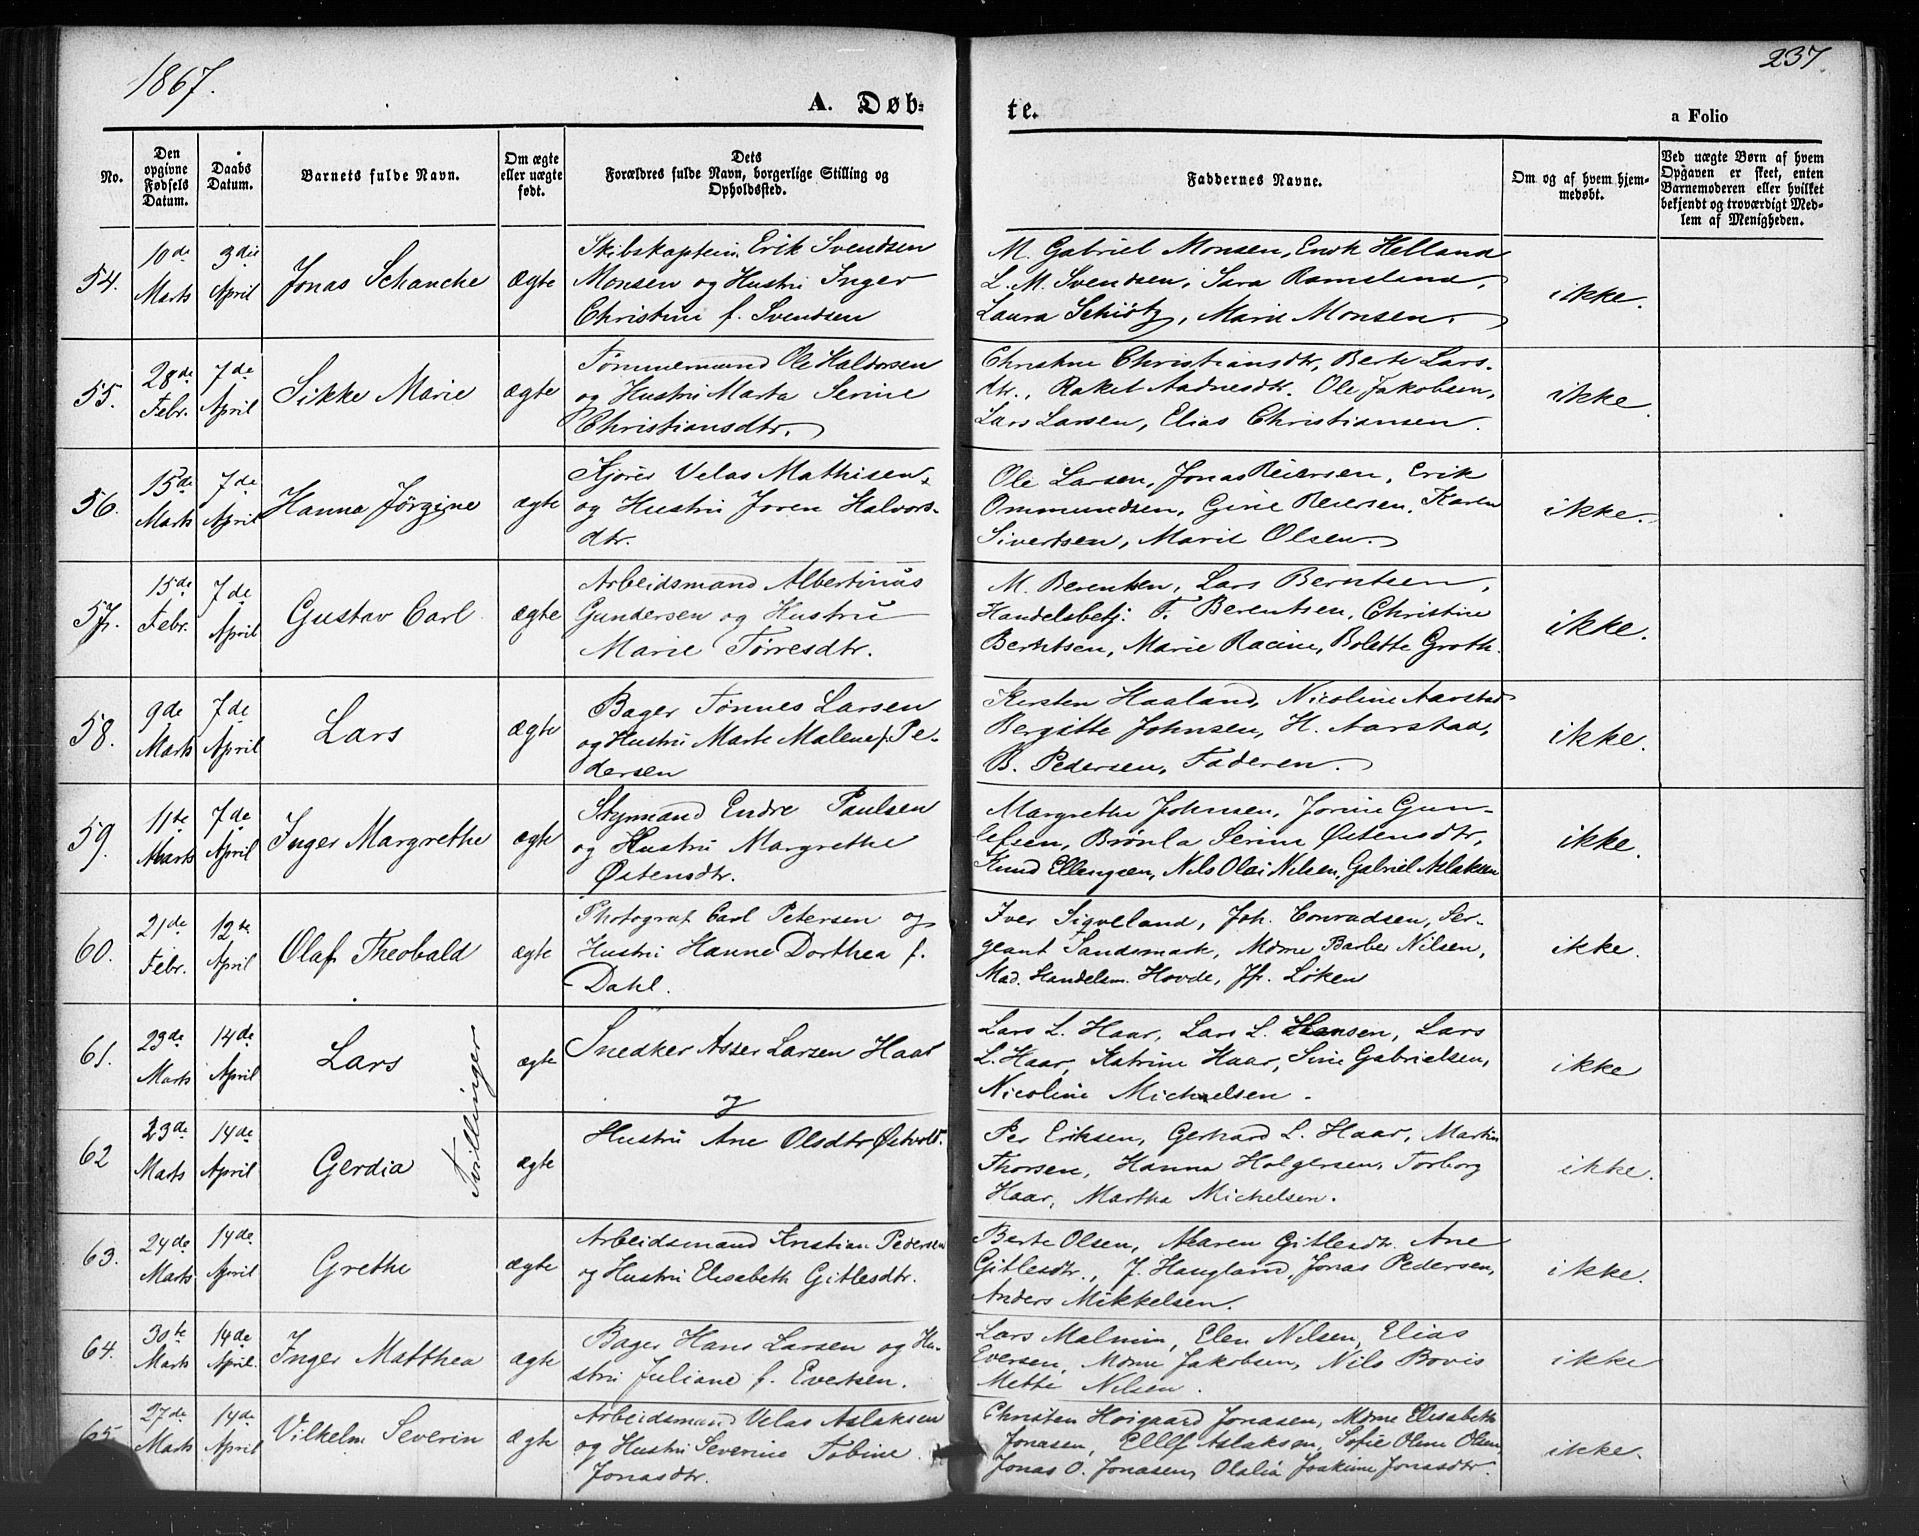 1867.
237.
A. Døb-
te.
a Folio
No.
Den opgivne Fødsels Datum.
Daabs Datum.
Barnets fulde Navn.
Om ægte eller uægte født.
Dets Forældres fulde Navn, borgerlige Stilling og Opholdssted.
Faddernes Navne.
Om og af hvem hjem-
medøbt.
Ved uægte Børn af hvem
Opgaven er skeet, enten
Barnemoderen eller hvilket
bekjendt og troværdigt Med-
lem af Menigheden.
54.
10de Marts
3die April
Jonas Schanche
ægte
Skibskaptein Erik Svendsen
Monsen og Hustru Inger
Christine f. Svendsen
M. Gabriel Monsen, Enok Helland
L. M. Svendsen, Sara Ramsland,
Laura Schiøtz, Marie Monsen.
ikke.
55.
28de Febr.
7de April
Sikke Marie
ægte
Tømmermand Ole Haldorsen
og Hustru Marta Serine
Christiansdtr.
Christine Christiansdtr, Berte Lars-
dtr., Rakel Aadnesdtr. Ole Jakobsen,
Lars Larsen, Elias Christiansen.
ikke.
56.
15de Marts
7de April
Hanna Jørgine
ægte
Kjører Velas Mathisen
og Hustru Joren Halvors-
dtr.
Ole Larsen, Jonas Reiersen, Erik
Ommundsen, Gine Reiersen, Karen
Sivertsen, Marie Olsen.
ikke.
57.
15de Febr.
7de April
Gustav Carl
ægte
Arbeidsmand Albertinus
Gundersen og Hustru
Marie Tørresdtr.
M. Berentsen, Lars Berntsen,
Handelsbetj: F. Berentsen, Christine
Berntsen, Marie Racine, Bolette Groth.
ikke.
58.
9de Marts
7de April
Lars
ægte
Bager Tønnes Larsen
og Hustru Marte Malene f. Pe-
dersen
Kersten Haaland, Nicoline Aarstad
Bergitte Johnsen, H. Aarstad,
B. Pedersen, Faderen.
ikke.
59.
11te Marts
7de April
Inger Margrethe
ægte
Styrmand Endre Paulsen
og Hustru Margrethe
Østensdtr.
Margrethe Johnsen, Jorine Gun-
lefsen, Brønla Serine Østensdtr,
Knud Ellengsen, Nils Olai Nilsen, Gabriel Aslaksen
ikke.
60.
21de Febr.
12te April
Olaf Theobald
ægte
Photograf Carl Petersen og
Hustru Hanne Dorthea f.
Dahl.
Iver Sigveland, Joh. Conradsen, Ser-
geant Sandsmark, Mdme Barber Nilsen,
Mad. Handelsm. Hovde, Jfr. Løken
ikke.
61.
23de Marts
14de April
Lars
Tvillinger
ægte
Snedker Asser Larsen Haar
og
Lars L. Haar, Lars L. Hansen, Lars
L. Haar, Katrine Haar, Sine Gabrielsen,
Nicoline Michaelsen.
ikke
62
23de Marts
14de April
Gerdia
ægte
Hustru Ane Olsdtr Østvold.
Per Eriksen, Gerhard L. Haar, Martin
Thorsen, Hanna Holgersen, Torborg
Haar, Martha Michelsen.
ikke.
63.
24de Marts
14de April
Grethe
ægte
Arbeidsmand Kristian Pedersen
og Hustru Elisabeth Gitlesdtr.
Berte Olsen, Maren Gitlesdtr. Ane
Gitlesdtr., J. Haugland, Jonas Pedersen,
Anders Mikkelsen.
ikke.
64.
30te Marts
14de April.
Inger Matthea
ægte
Bager Hans Larsen og Hu-
stru Juliane f. Evertsen.
Lars Malmin, Elen Nilsen, Elias
Eversen, Mdme Jakobsen, Nils Bovis
Mette Nilsen.
ikke
65
27de Marts
14de April
Vilhelm Severin
ægte
Arbeidsmand Velas Aslaksen
og Hustru Severine Tobine
Jonasdtr.
Christen Hoigaard Jonasen, Mdme Elisabeth
Jonasen, Ellef Aslaksen, Sofie Olene Olsen,
Jonas O. Jonasen, Olalia Joakime Jonasdtr.
ikke.